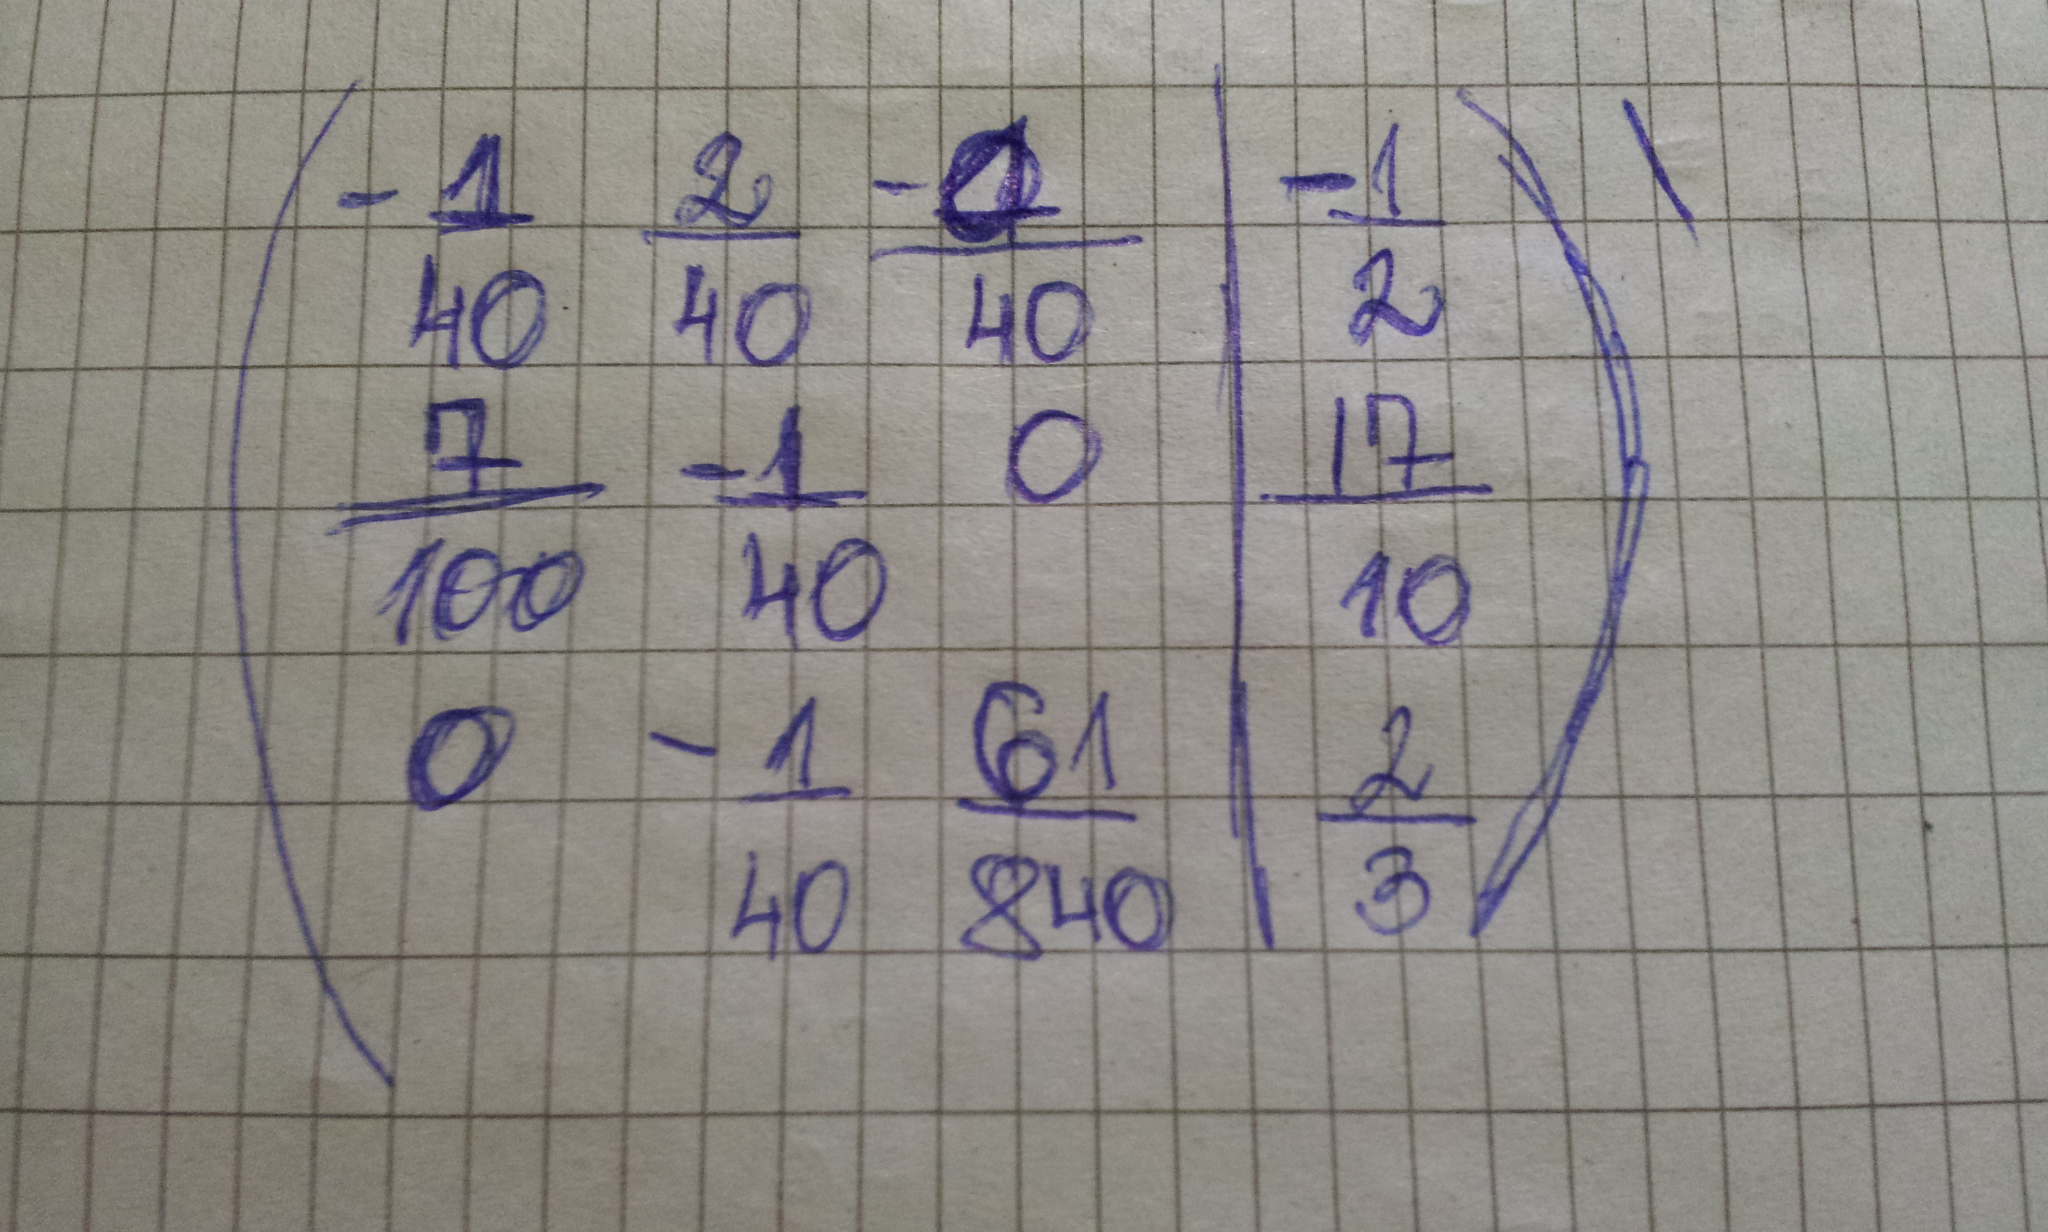 -1/40 2/40 -1/40 | -1/2
7/100 -1/40 0 | 17/10
0 -1/40 61/840 | 2/3